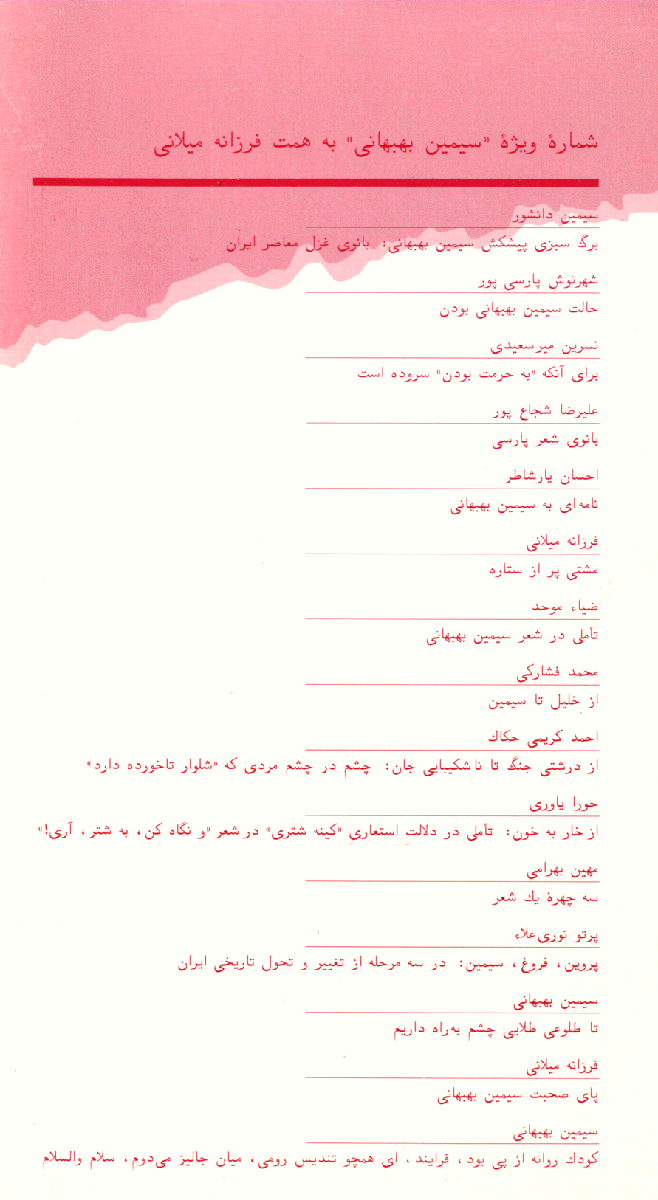 شمارهٔ ویژهٔ "سیمین بهبهانی" به همت فرزانه میلانی
سیمین دانشور
برگ سبزی پیشکش سیمین بهبهانی: بانوی غزل معاصر ایران
شهرنوش پارسی پور
حالت سیمین بهبهانی بودن
نسرین میرسعیدی
برای آنکه "به حرمت بودن" سروده است
علیرضا شجاع پور
بانوی شعر پارسی
احسان یارشاطر
نامه‌ای به سیمین بهبهانی
فرزانه میلانی
مشتی پر از ستاره
ضیاء موحد
تأملی در شعر سیمین بهبهانی
محمد فشارکی
از خلیل تا سیمین
احمد کریمی حکاک
از درشتی جنگ تا ناشکیبایی جان: چشم در چشم مردی که «شلوار تاخورده دارد»
حورا یاوری
از خار به خون: تأملی در دلالت استعاری «کینه شتری» در شعر «و نگاه کن، به شتر، آری!»
مهین بهرامی
سه چهرهٔ یك شعر
پرتو نوری‌علاء
پروین، فروغ، سیمین: در سه مرحله از تغییر و تحول تاریخی ایران
سیمین بهبهانی
تا طلوعی طلایی چشم به‌راه داریم
فرزانه میلانی
پای صحبت سیمین بهبهانی
سیمین بهبهانی
کودك روانه از پی بود، فرایند، ای همچو تندیس رومی، میان جالیز می‌دوم، سلام والسلام